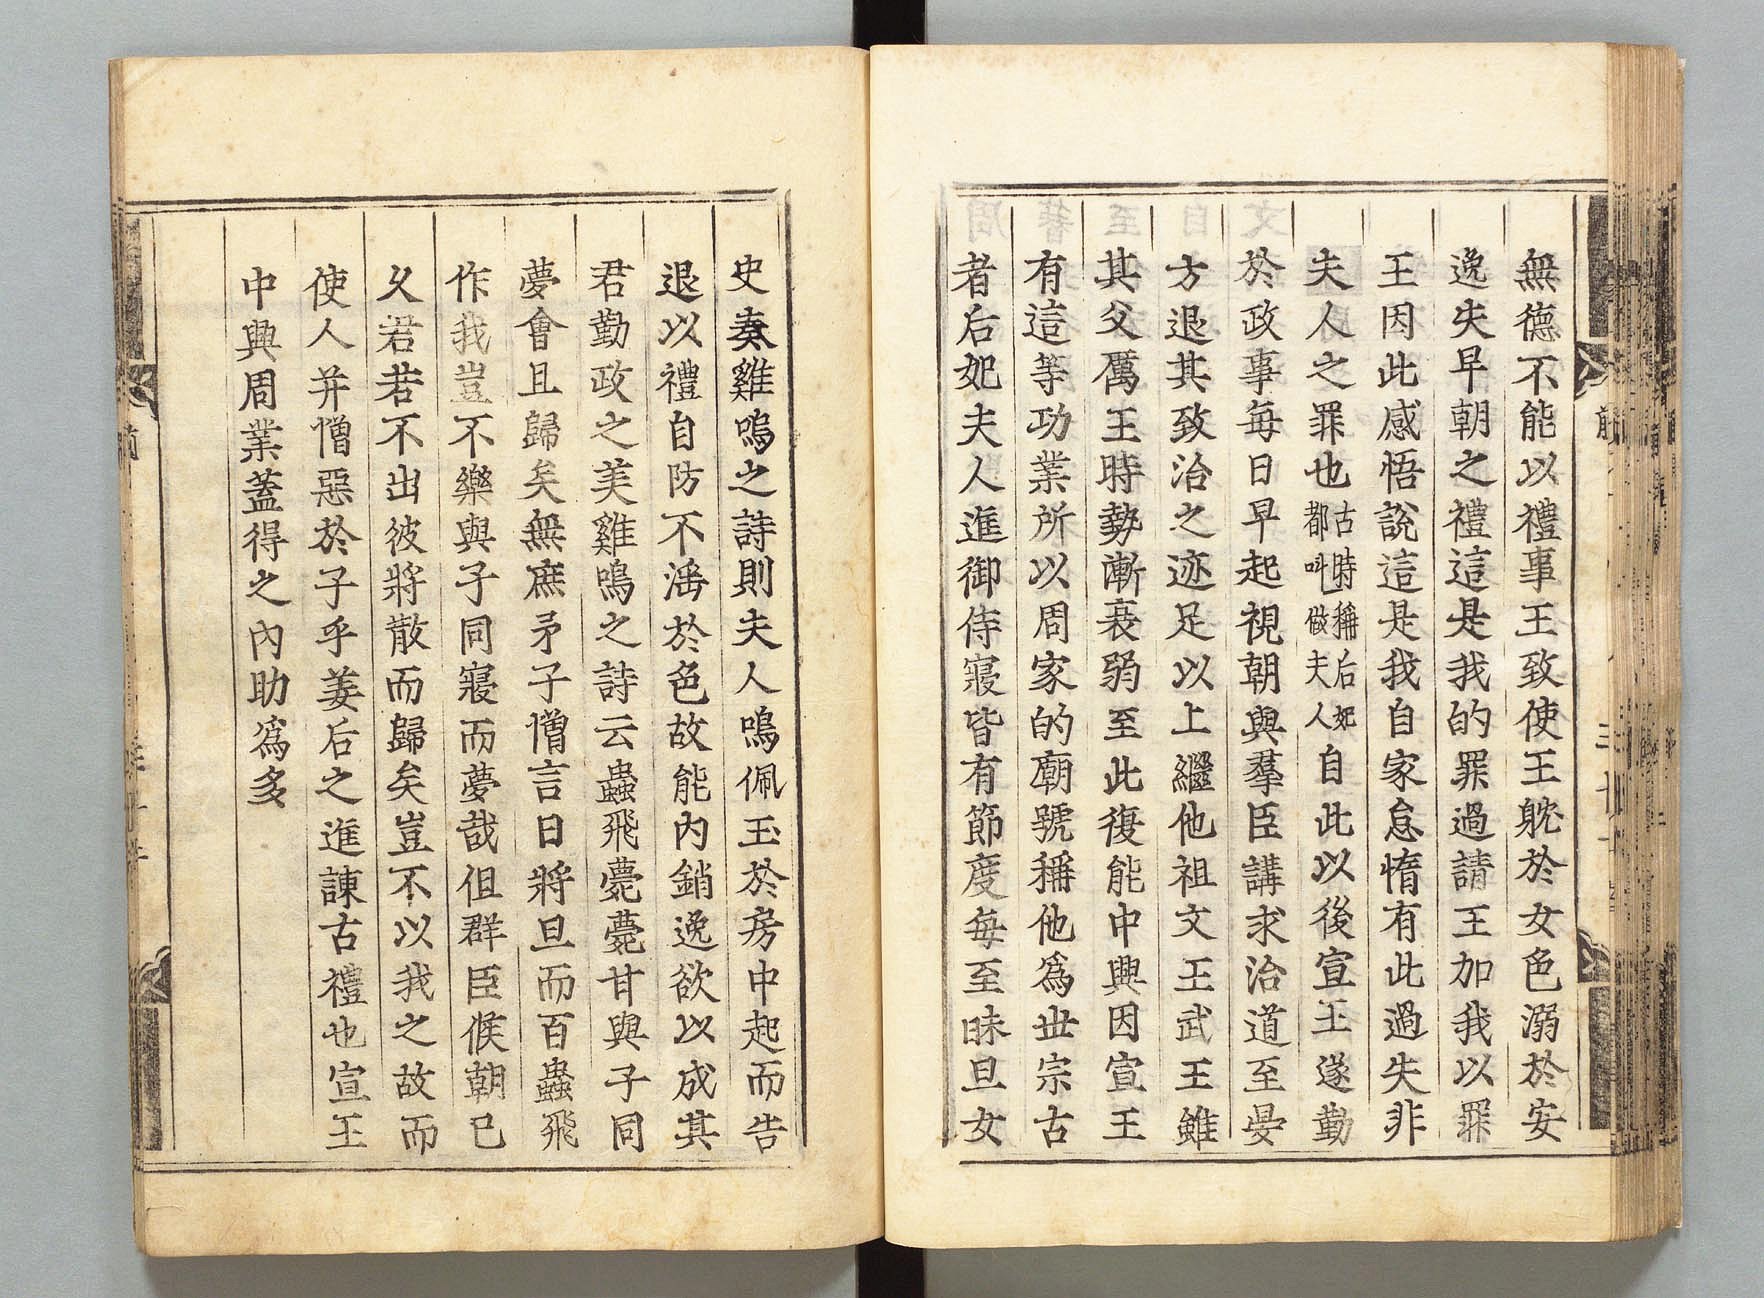 無德不能以禮事王致使王躭於女色溺於安
逸失早朝之禮這是我的罪過請王加我以罪
王因此感悟說這是我自家怠惰有此過失非
夫人之罪也古時稱后妃都叫做夫人自此以後宣王遂勤
於政事每日早起視朝與羣臣講求治道至晏
方退其致治之迹足以上繼他祖文王武王雖
其父厲王時勢漸衰弱至此復能中興因宣王
有這等功業所以周家的廟號稱他為世宗古
者后妃夫人進御侍寢皆有節度每至昧旦女
史奏雞鳴之詩則夫人鳴佩玉於房中起而告
退以禮自防不滛於色故能內銷逸欲以成其
君勤政之美雞鳴之詩云蟲飛薨薨甘與子同
夢會且歸矣無庶予子憎言日將旦而百蟲飛
作我豈不樂與子同寢而夢哉但群臣候朝已
久君若不出彼將散而歸矣豈不以我之故而
使人并憎惡於子乎姜后之進諫古禮也宣王
中興周業蓋得之內助為多